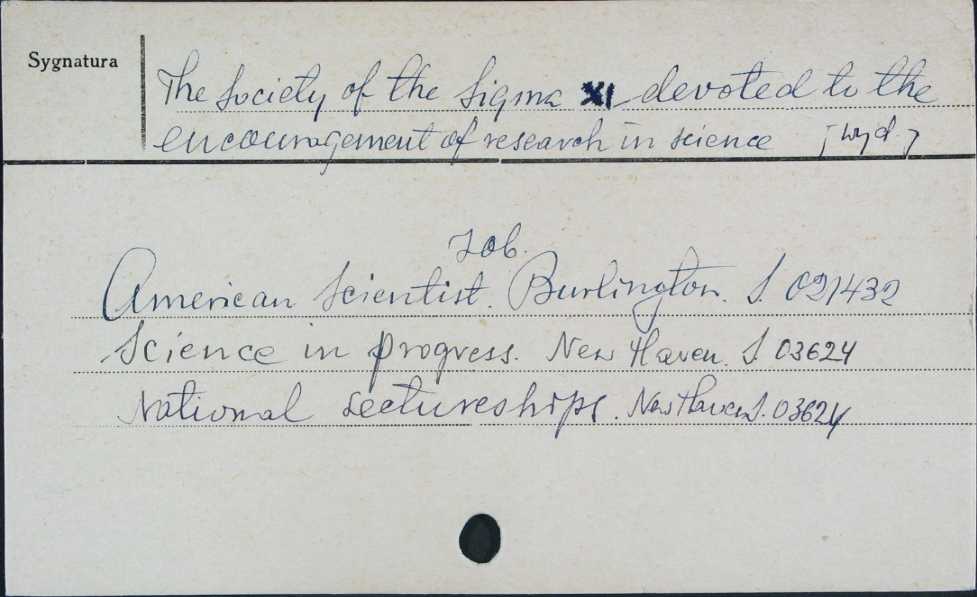 Sygnatura
The Society of the Sigma XI devoted to the
encouragement of research in science [wyd.]
Zob.
American Scientist. Burlington. S. 021432
Science in progress. New Haven. S 03624
National Lectureships. New Haven S. 03624